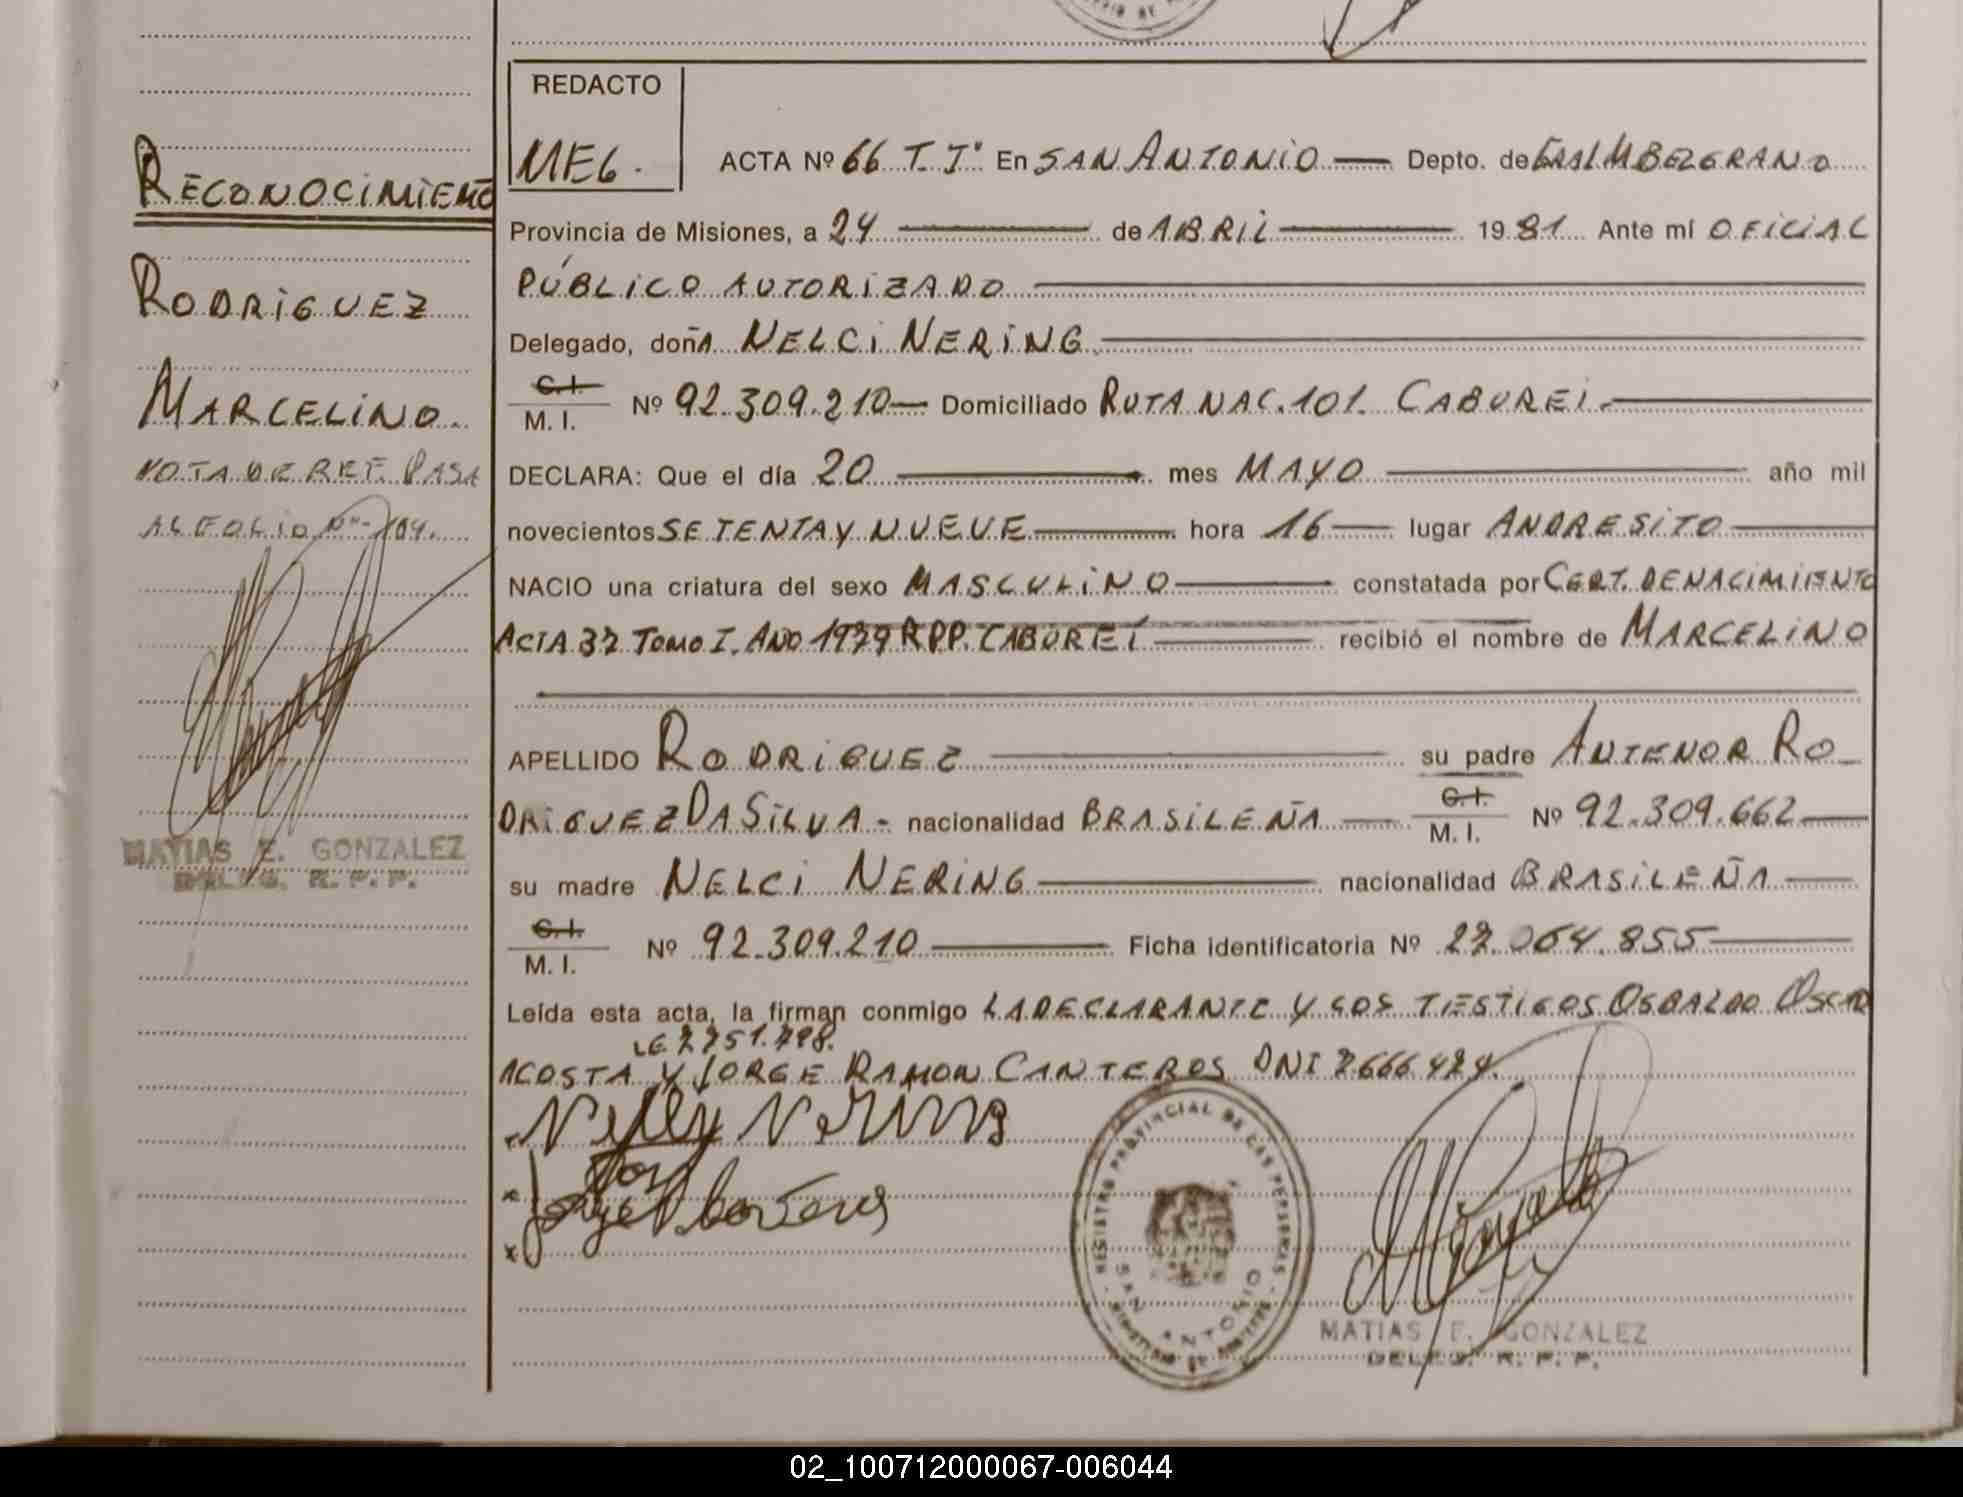 REDACTO
MEG.
ACTA Nº 66 T. Iº En SAN ANTONIO Depto. de GRAL M BELGRANO
Provincia de Misiones, a 24 de ABRIL 1981 Ante mí OFICIAL
PÚBLICO AUTORIZADO
Delegado, doñA NELCI NERING
C.I.
M. I. Nº 92.309.210 Domiciliado RUTA NAC. 101. CABUREI.
DECLARA: Que el día 20 mes MAYO año mil
novecientos SETENTA Y NUEVE hora 16 lugar ANDRESITO
NACIO una criatura del sexo MASCULINO constatada por CERT. DE NACIMIENTO
ACTA 37 TOMO I. AÑO 1979 R.P.P. CABUREÍ recibió el nombre de MARCELINO
APELLIDO RODRIGUEZ su padre ANTENOR RO-
DRIGUEZ DA SILVA - nacionalidad BRASILEÑA C.I. M. I. Nº 92.309.662
su madre NELCI NERING nacionalidad BRASILEÑA
C.I.
M. I. Nº 92.309.210 Ficha identificatoria Nº 27.064.855
Leída esta acta, la firman conmigo LA DECLARANTE Y LOS TESTIGOS OSBALDO OSCAR
LE 7751.798.
ACOSTA Y JORGE RAMON CANTEROS DNI 7.666.474.
Nelly Nering
MATIAS E. GONZALEZ
DELEG. R. P. P.
REGISTRO PROVINCIAL DE LAS PERSONAS
SAN ANTONIO
RECONOCIMIENTO
RODRIGUEZ
MARCELINO
NOTA DE REF. PASA
AL FOLIO Nº 104.
MATIAS E. GONZALEZ
DELEG. R. P. P.
02_100712000067-006044